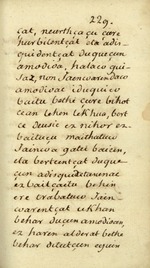 229.
cat, neurthicaçu cure
hurbilentçat eta adis-
quidentçat duquegun
amodioa, halaco qui-
çaz, non Jaincuaren daco
amodioac iduquico
baitu bethi gure bihot
cean lehen lekhua, bert
ce deusic ez nihor ez-
baitugu maithatuco
Jaincoa gatic baicin,
eta bertcentçat dugue
cun adisquidetasunac
ez baitçaitu behin
ere trabatuco Jain-
coarentçat cekhan
behar duçun amodioan
ez haren alderat bethe
behar ditutçun eguin